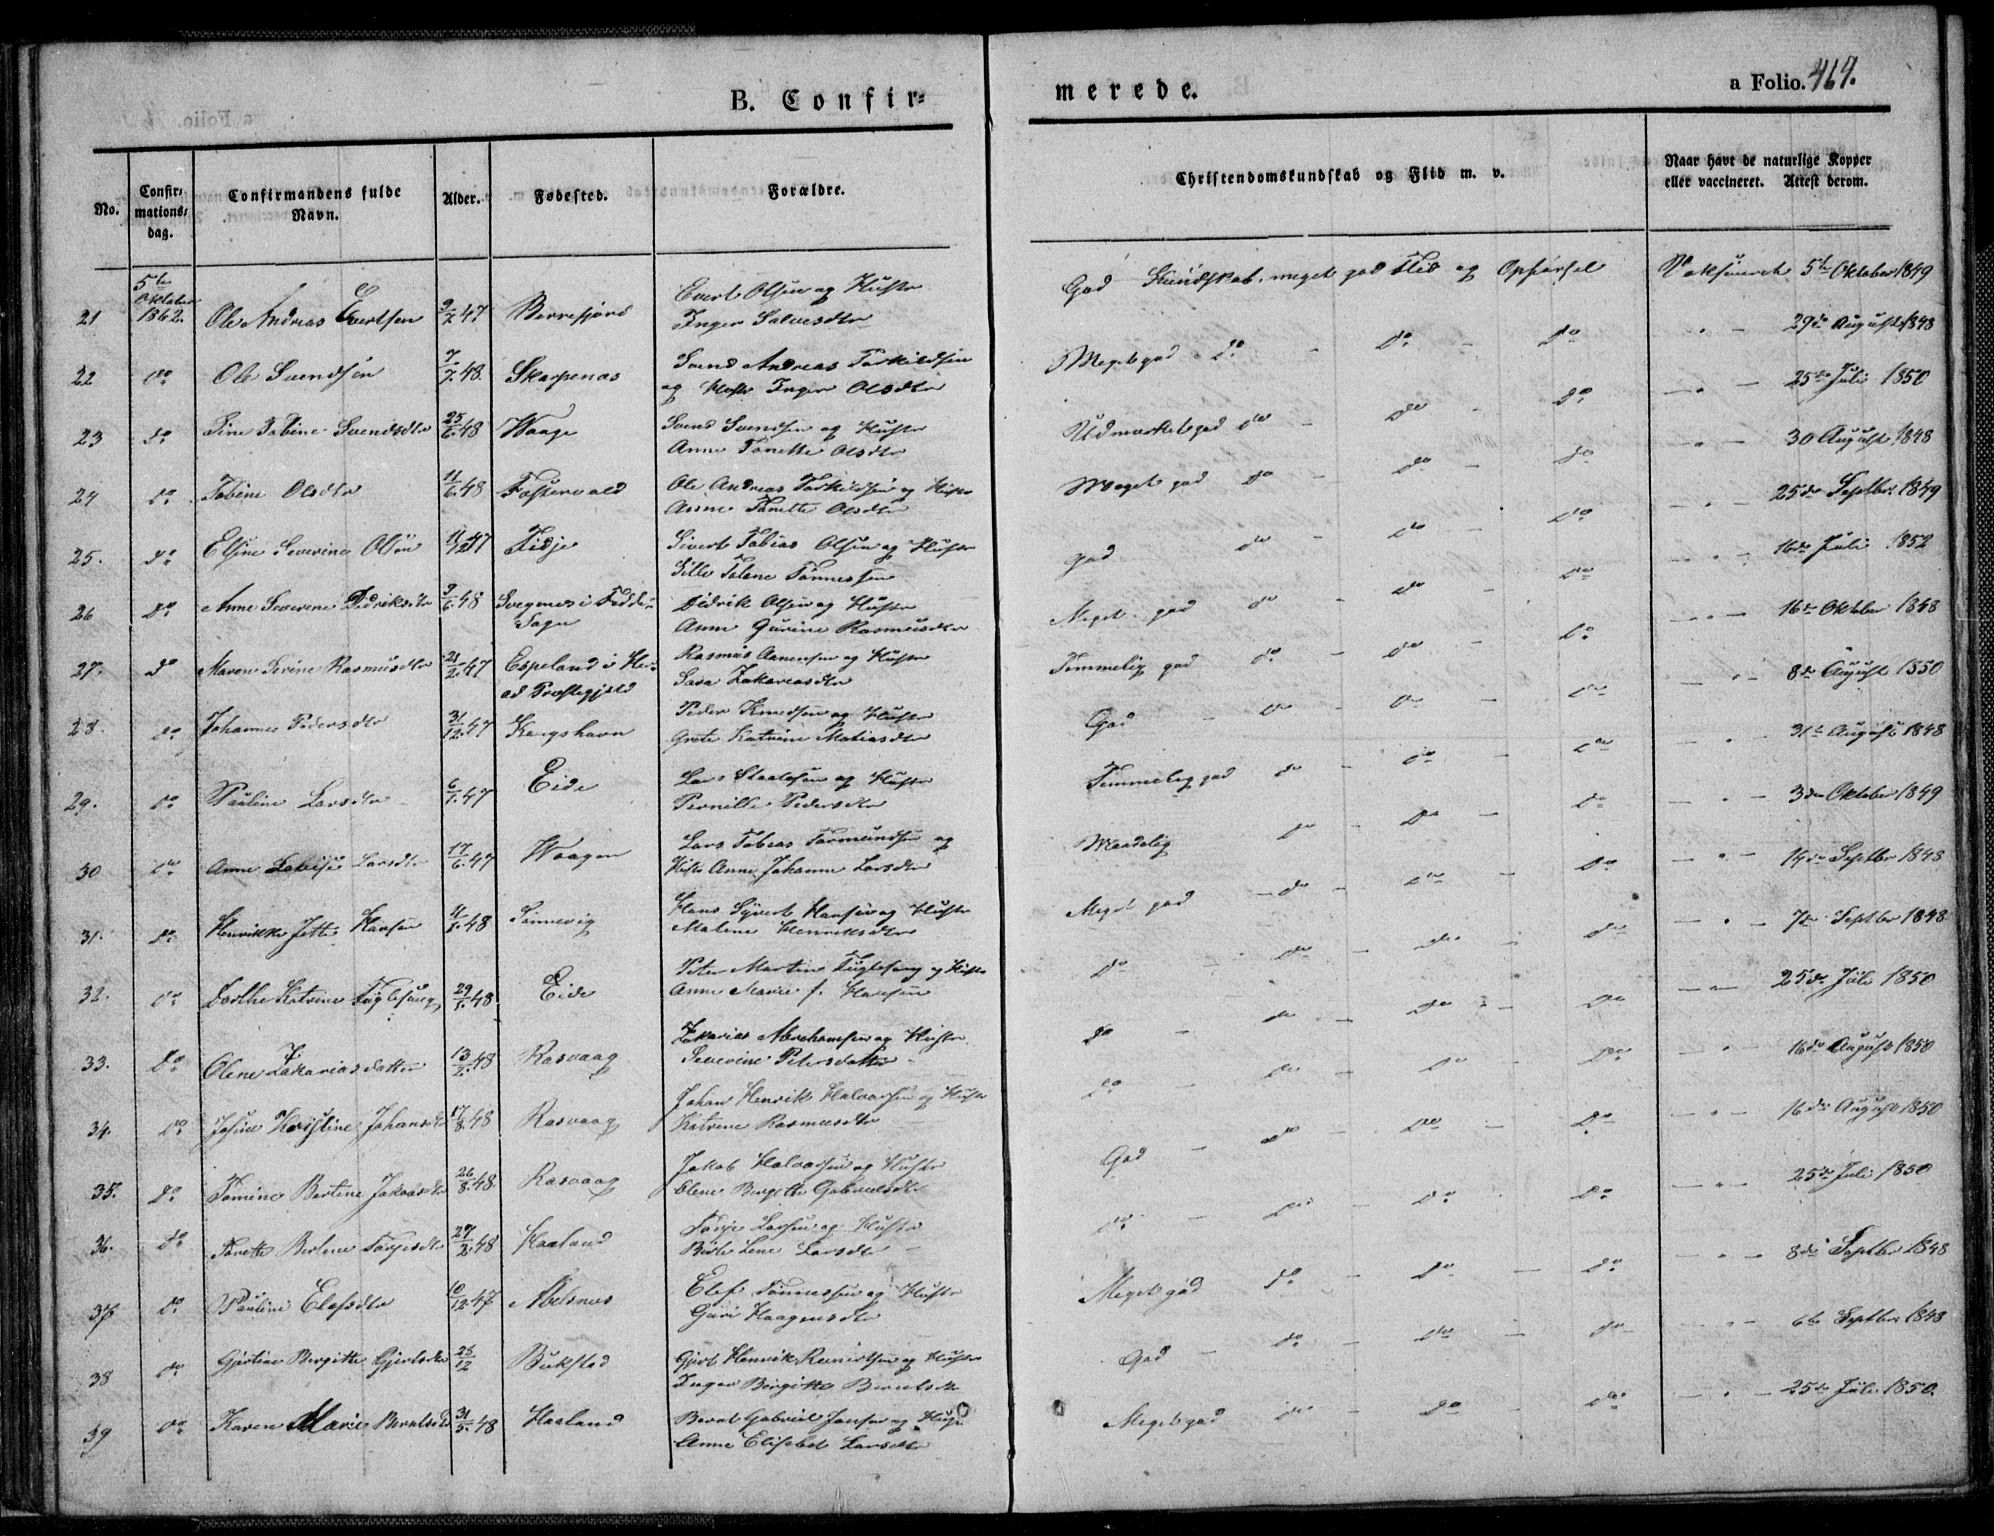 B. Confir=
merede.
a Folio. 464.
No.
Confir=
mations=
dag.
Confirmandens fulde
Navn.
Alder.
Fødested.
Forældre.
Christendomskundskab og Flid m. v.
Naar havt de naturlige Kopper
eller vaccineret. Attest derom.
21 5te Oktober 1862. Ole Andreas Evertsen 9/2 47 Berrefjord Evert Olsen og Hustr
Inger Salvesdtr
God Kundskab, meget god Flid og Opførsel 5te Oktober 1849
22 do Ole Svendsen 7/7. 48. Skarpenæs Svend Andreas Torkildsen
og Hustr Inger Olsdtr
Meget god do - do - do 29de August 1848
23 do Sine Tobine Svendsdtr 25/6. 48 Waage Svend Svendsen og Hustr
Anne Tonette Olsdtr
Udmærket god do do - do 25de Juli 1850
24 do Tobine Olsdtr 11/6 48 Ole Andreas Torkildsen og Hustr
Anne Tonette Olsdtr
Meget god do - do - do 30 August 1848
25. do Elsine Severine Olsen 47 Tidje Sivert Tobias Olsen og Hustr
Sille Tolene Tønnessen
god do - do do 25de Septbr 1849
26 do Anne Severine Didriksdtr 3/6. 48 i Fedde
Sogn Didrik Olsen og Hustr
Anne Gurine Rasmusdtr
Meget god do - do do 16de Juli 1852
27. do Maren Serine Rasmusdtr 21/2. 47 Espeland i Her=
ad Præstegjeld Rasmus Aanensen og Hustr
Sara Zakariasdtr
Temmelig god do - do do 16de Oktober 1848
28. do Johanne Pedersdtr 31/12. 47 Kongshavn Peder Knudsen og Hustr
Grete Katrine Matiasdtr
God - do - do - do 8de August 1850
29. do Pauline Larsdtr 6/1. 47 Eide Lars og Hustr
Pernille Pedersdtr
Temmelig god do - do - do 31te August 1848
30 do Anne Larsdtr 17/6. 47 Waagen Lars Tobias Tormundsen og
Hustr Anne Johanne Larsdtr
Maadelig do - do - do 3die Oktober 1849
31. do Henrikke Jette Hansen 11/1. 48 Sønnevig Hans Syvert Hansen og Hustr
Malene Henriksdtr
Meget god - do - do - do 14de Septbr 1848
32. do Dorthe Katrine Fuglesang 29/1. 48 Eide Peter Martin Fuglesang og Hustr
Anne Marie f. Hansen
do - do - do - do 7de Septbr 1848
33. do Olene Zakariasdatter 13/2. 48 Rasvaag Zakarias Abrahamsen og Hustr
Severine Petersdatter
do - do - do - do 25de Juli 1850
34. do Josine Kristine Johansdtr 17/8. 48 Rasvaag Johan Henrik Halvorsen og Hustr
Katrine Rasmusdtr
do - do - do - do 16de August 1850
35. do Tomine Bertine Jakobsdtr 26/8. 48. Rasvaag Jakob Halvorsen og Hustr
Elene Bergitte Gabrielsdtr
God - do - do - do 16de August 1850
36. do Tonette Bertine Torjesdtr 27/2. 48 Haaland Torje Larsen og Hustr
Birte Lene Larsdtr
do - do - do - do 25de Juli 1850
37 do Pauline Elefsdtr 10/12. 47 Abelsnæs Elef Tønnessen og Hustr
Guri Haagensdtr
Meget god do - do - do 8de Septbr 1848
38 do Gjertine Bergitte Gjertsdtr 28/12 Bukstad Gjert Henrik Reinertsen og Hustr
Inger Bergitte Berntsdtr
God - do - do - do 6te Septbr 1848
39 do Karen Marie Berntsdtr 31/5. 48 Haaland Bernt Gabriel Jansen og Hustr
Anne Elisabet Larsdtr
Meget god do - do - do 25de Juli 1850.